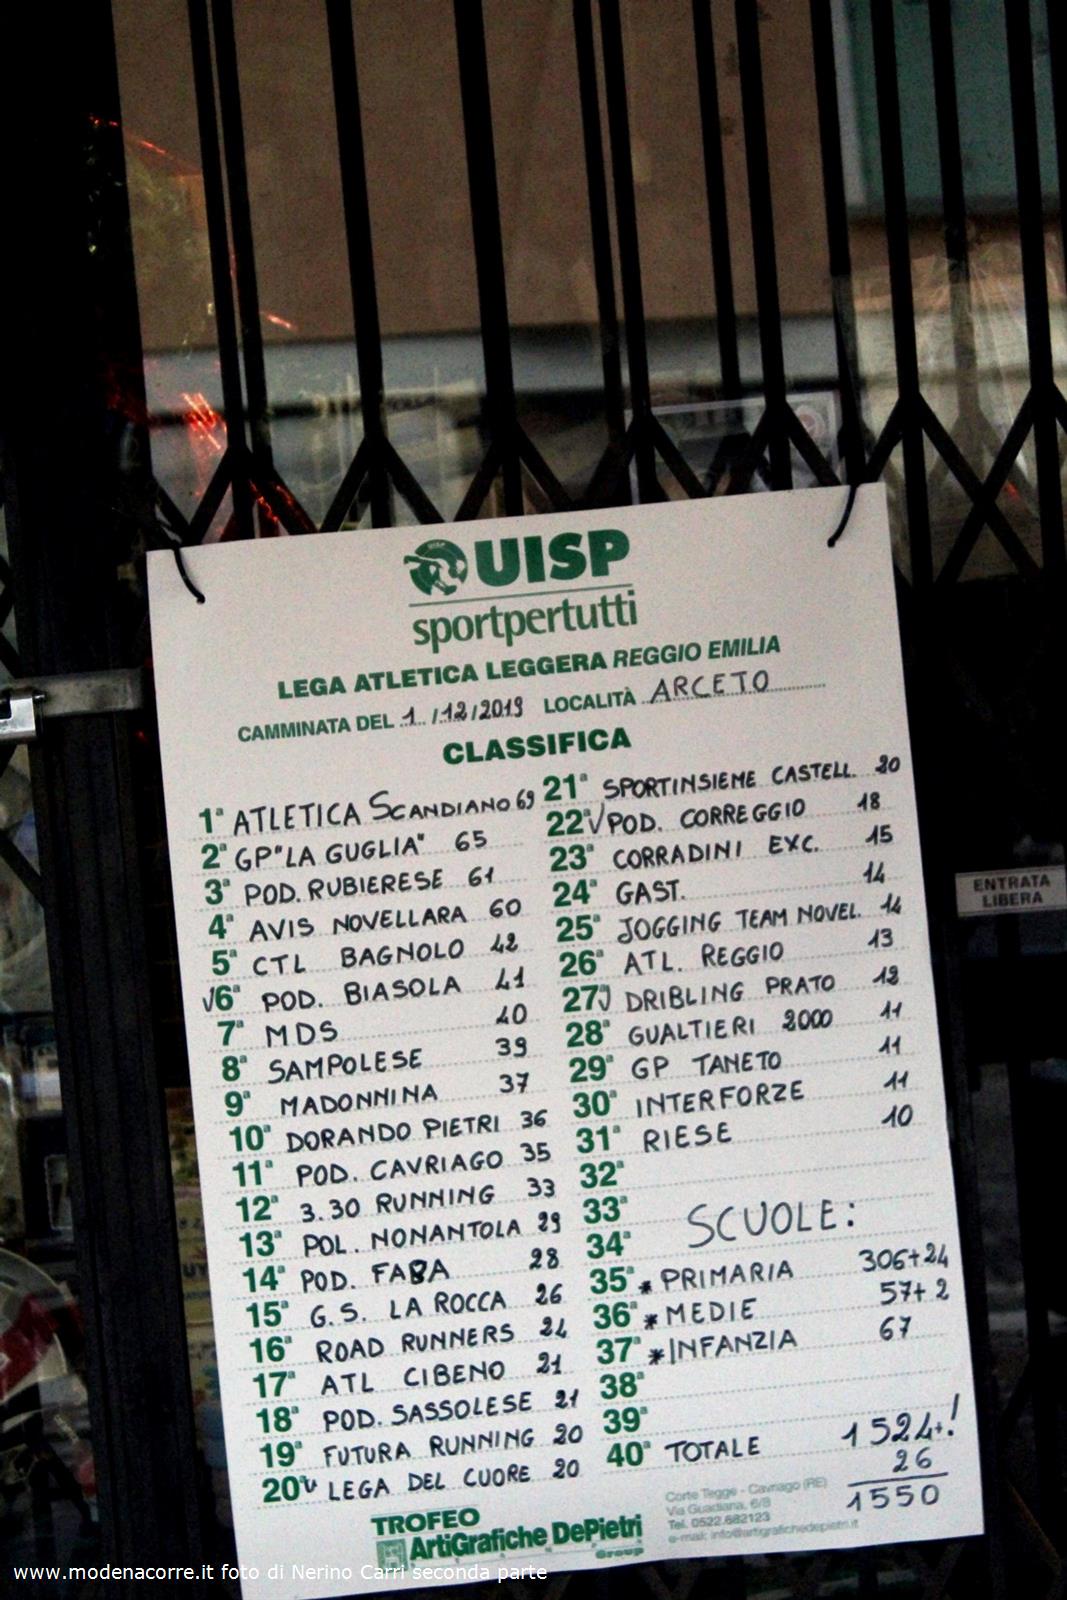 UISP
sportpertutti
LEGA ATLETICA LEGGERA REGGIO EMILIA
CAMMINATA DEL 1 /12/2019 LOCALITÀ ARCETO
CLASSIFICA
1ª ATLETICA SCANDIANO 69
2ª GP "LA GUGLIA" 65
3ª POD. RUBIERESE 61
4ª AVIS NOVELLARA 60
5ª CTL BAGNOLO 42
√6ª POD. BIASOLA 41
7ª MDS 40
8ª SAMPOLESE 39
9ª MADONNINA 37
10ª DORANDO PIETRI 36
11ª POD. CAVRIAGO 35
12ª 3.30 RUNNING 33
13ª POL. NONANTOLA 29
14ª POD. FABA 28
15ª G.S. LA ROCCA 26
16ª ROAD RUNNERS 24
17ª ATL CIBENO 21
18ª POD. SASSOLESE 21
19ª FUTURA RUNNING 20
20ª LEGA DEL CUORE 20
21ª SPORTINSIEME CASTELL. 20
22ª √ POD. CORREGGIO 18
23ª CORRADINI EXC. 15
24ª GAST. 14
25ª JOGGING TEAM NOVEL. 14
26ª ATL. REGGIO 13
27ª DRIBLING PRATO 12
28ª GUALTIERI 2000 11
29ª GP TANETO 11
30ª INTERFORZE 11
31ª RIESE 10
32ª
33ª
34ª SCUOLE:
35ª * PRIMARIA 306+24
36ª * MEDIE 57+2
37ª * INFANZIA 67
38ª
39ª
40ª TOTALE 1524+!
26
1550
TROFEO
ArtiGrafiche DePietri
Group
Corte Tegge - Cavriago (RE)
Via Guadiana, 6/8
Tel. 0522.682123
e-mail: info@artigrafichedepietri.it
ENTRATA
LIBERA
www.modenacorre.it foto di Nerino Carri seconda parte